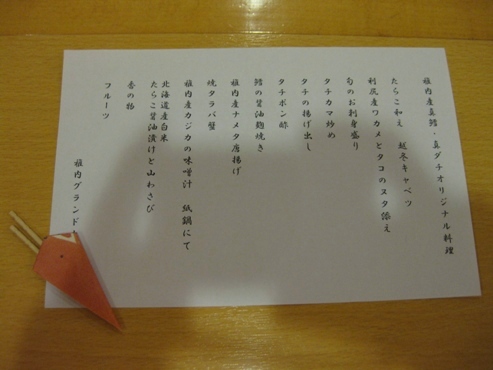 稚内産真鱈・真ダチオリジナル料理
たらこ和え　越冬キャベツ
利尻産ワカメとタコのヌタ添え
旬のお刺身盛り
タチカマ炒め
タチの揚げ出し
タチポン酢
鱈の醤油麹焼き
稚内産ナメタ唐揚げ
焼タラバ蟹
稚内産カジカの味噌汁　紙鍋にて
北海道産白米
たらこ醤油漬けと山わさび
香の物
フルーツ
稚内グランド